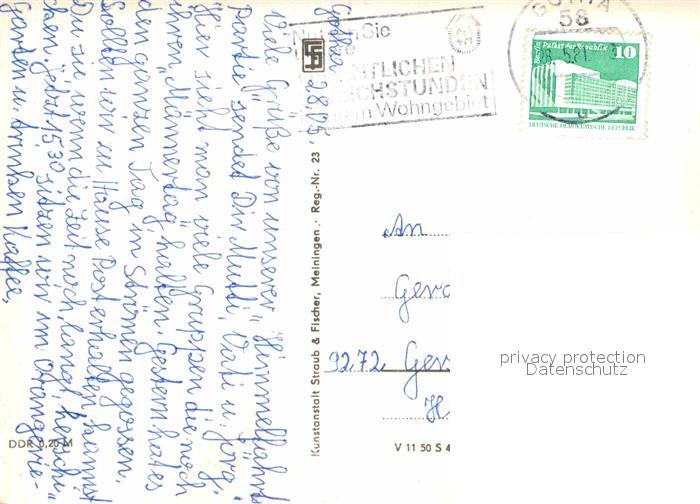 Gotha 28.05.
Liebe Grüße von unserer "Himmelfahrts
Partie" sendet Dir Mutti, Vati u. Jörg.
Hier zieht man viele Gruppen die noch
ihren "Männertag" halten. Gestern hat es
den ganzen Tag in Strömen gegossen.
Sollten wir zu Hause Post erhalten kannst
Du zu wenn die Zeit noch langt, herschi-
cken. Jetzt 15.30 sitzen wir im Orangerie-
Garten u. trinken Kaffee.
DDR 0,20 M
Kunstanstalt Straub & Fischer, Meiningen · Reg.-Nr. 23
V 11 50 S 4
Nutzen Sie
ÖFFENTLICHEN
SPRECHSTUNDEN
Wohngebiet
GOTHA
58
Berlin, Palast der Republik
10
DEUTSCHE DEMOKRATISCHE REPUBLIK
An
Ger
9272 Ger
H
privacy protection
Datenschutz